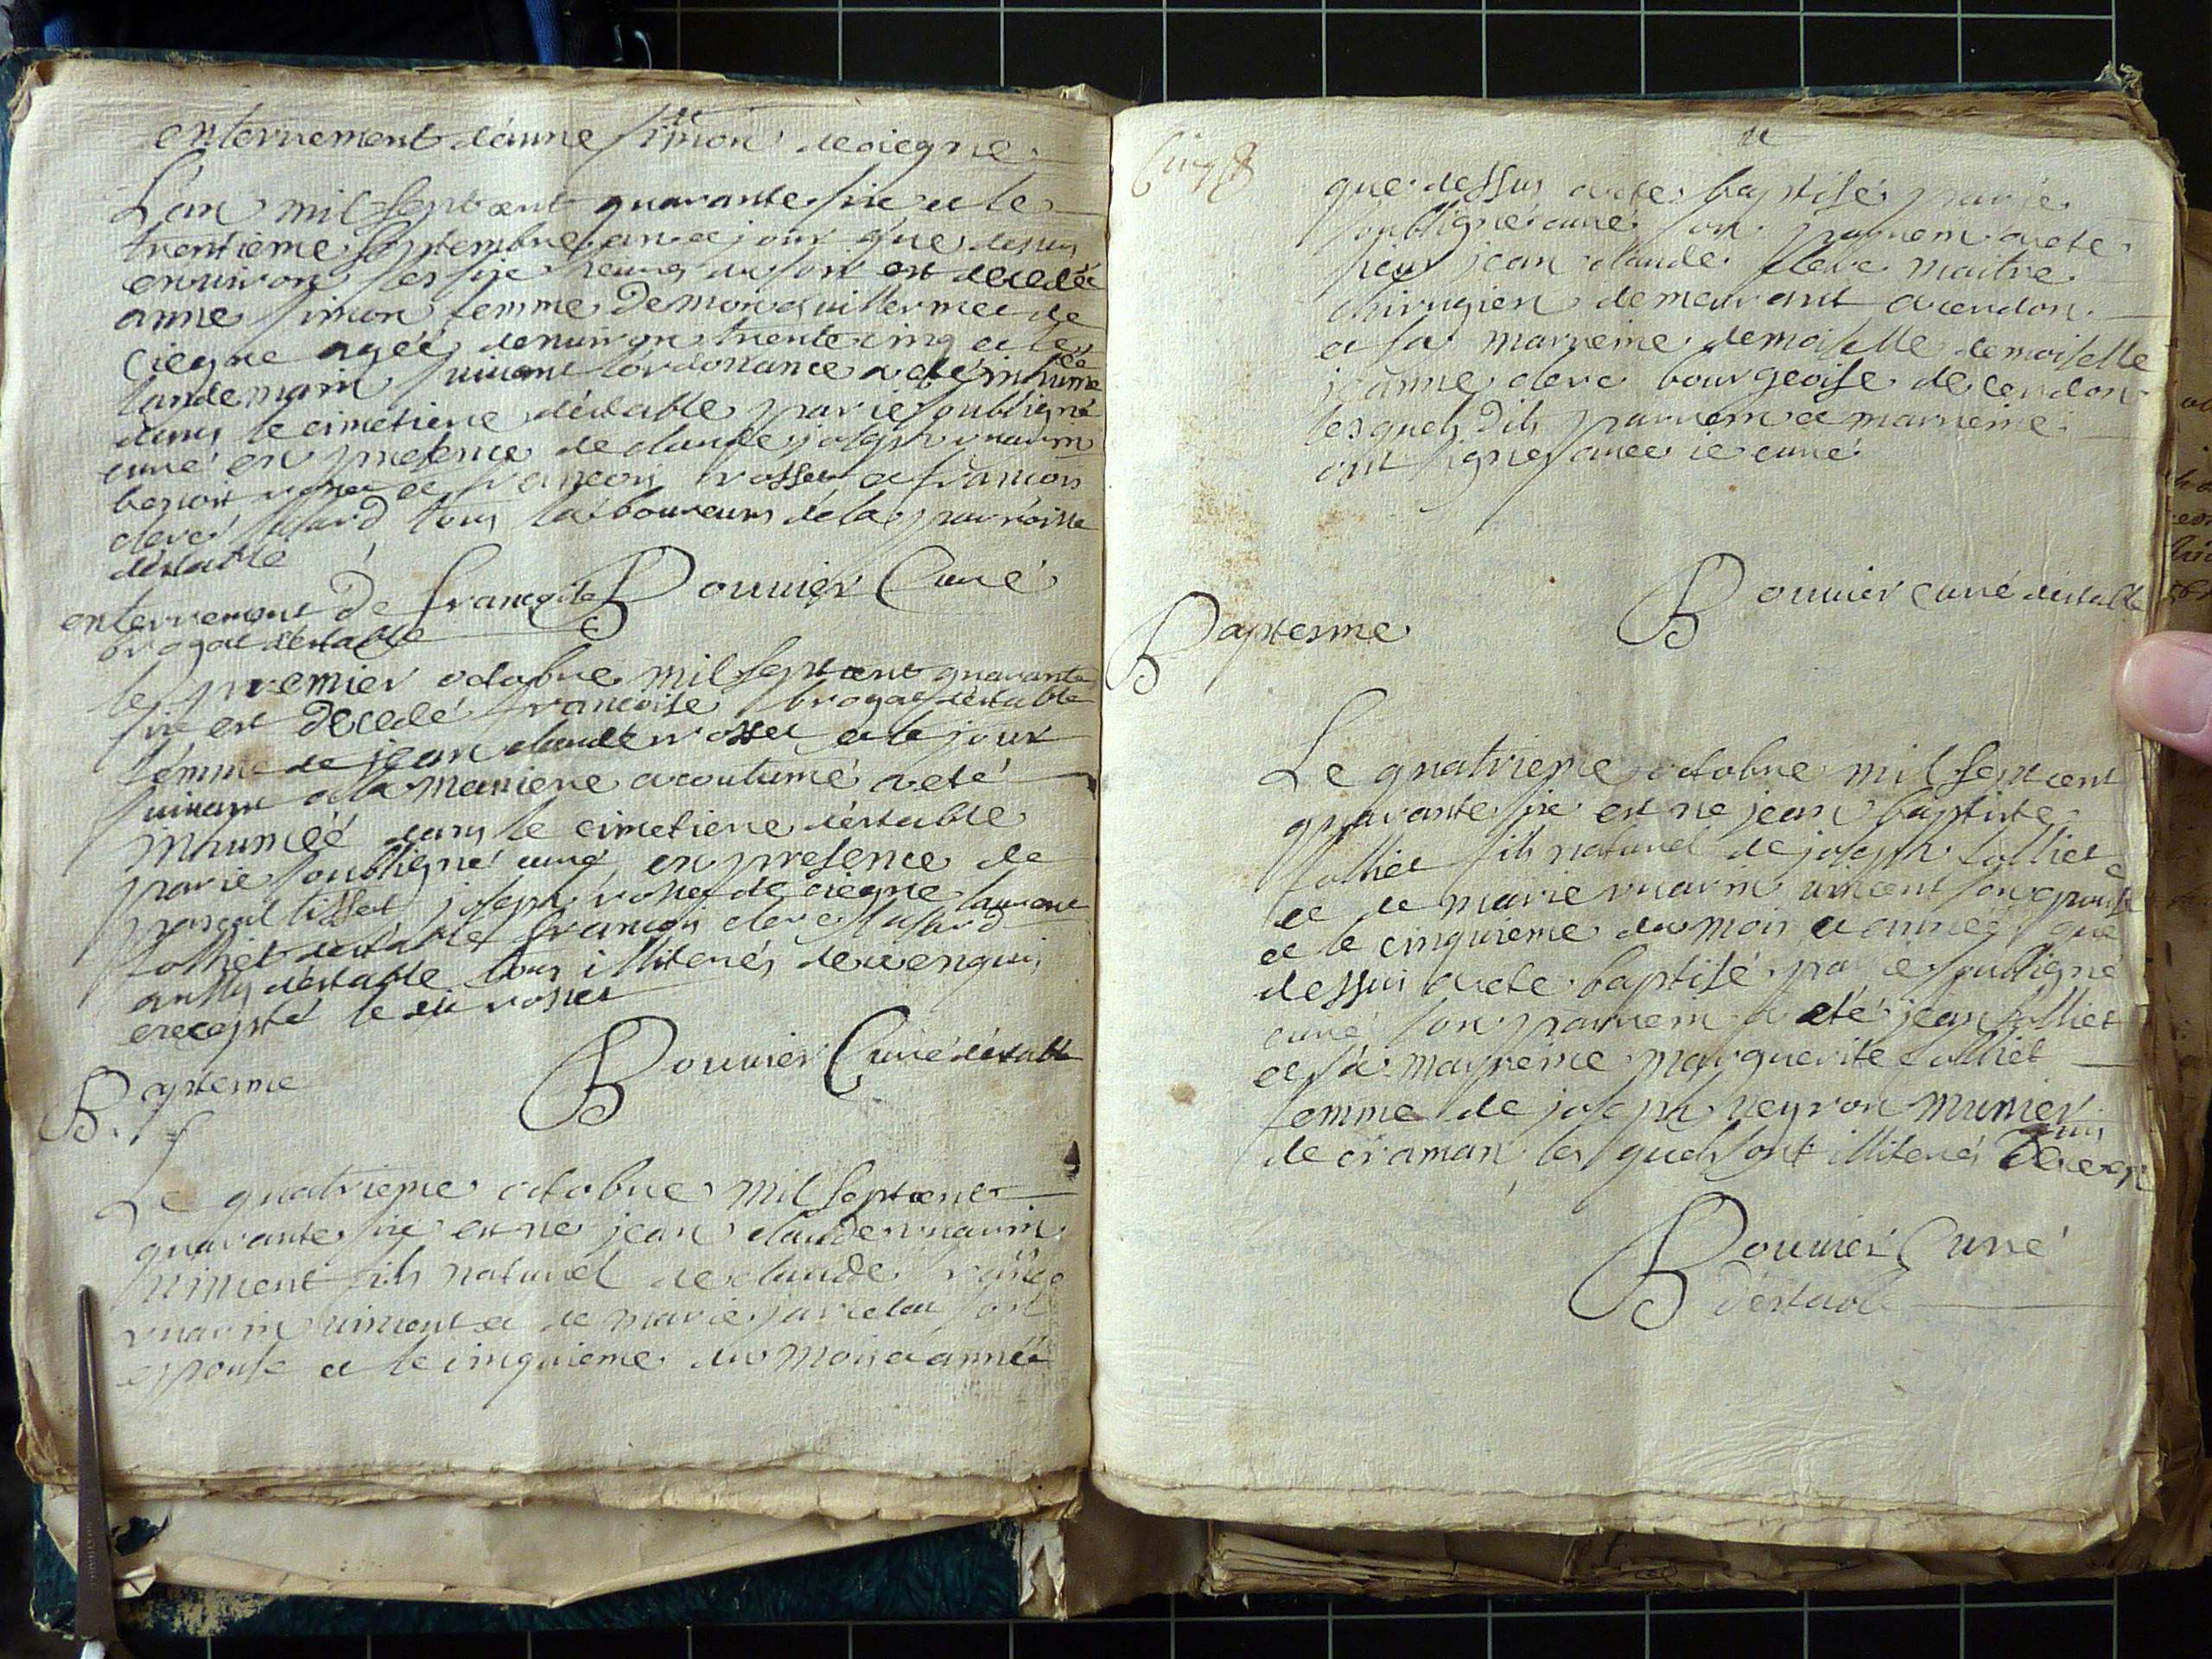 enterrement d'anne simon de ciegne
Lan mil sept cent quarante sic et le
trentieme septembre an et jour que dessus
environ les sic heures du soir est decedée
anne simon femme De guillermet de
ciegne agée denviron trente cinq et le
landemain suivant lordonnance a eté inhumée
dans le cimetiere déstable par ie soubsigné
curé en presence de claude joseph
benoit rosset et françois rosset et françois
clerc tous laboureurs de la parroisse
déstable
Bouvier Curé
enterrement De françoise
brogat déstable
le premier octobre mil sept cent quarante
sic est Decedé françoise brogat déstable
femme de jean claude rosset et le jour
suivant a la maniere acoutumé a eté
inhumée dans le cimetiere déstable
par ie soubsigné curé en presence de
pascal tisset joseph rosset de ciegne laurent
tolliet déstable françois clerc
aussy déstable tous illiterés de ce enquis
excepté le dit rosset
Bouvier Curé déstable
Baptesme
Le quatrieme octobre mil sept cent
quarante sic est ne jean claude
vincent fils naturel de claude
vincent et de marie son
espouse et le cinquieme du mois et année
de
Cinq
que dessus a ete baptisé par ie
soubsigné curé son parrein a ete
sieur jean claude clerc maitre
chirugien demeurant a cerdon
et sa marreine demoiselle demoiselle
jeanne clerc bourgeoise de cerdon
lesquels Dits parrein et marreine
ont signes avec ie curé
Bouvier curé déstable
Baptesme
Le quatrieme octobre mil sept cent
quarante sic est ne jean baptiste
tolliet fils naturel de joseph tolliet
et de marie vincent son epouse
et le cinquieme du mois et année que
dessus a ete baptisé par ie soubsigné
curé son parrein a eté jean tolliet
et sa marreine marguerite tolliet
femme de joseph neyron munier
de craman les quels sont illiterés De ce enquis
Bouvier Curé
déstable